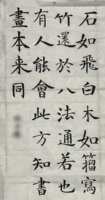 石如飛白木如籀寫
竹還於八法通若也
有人能會此方知書
畫本來同